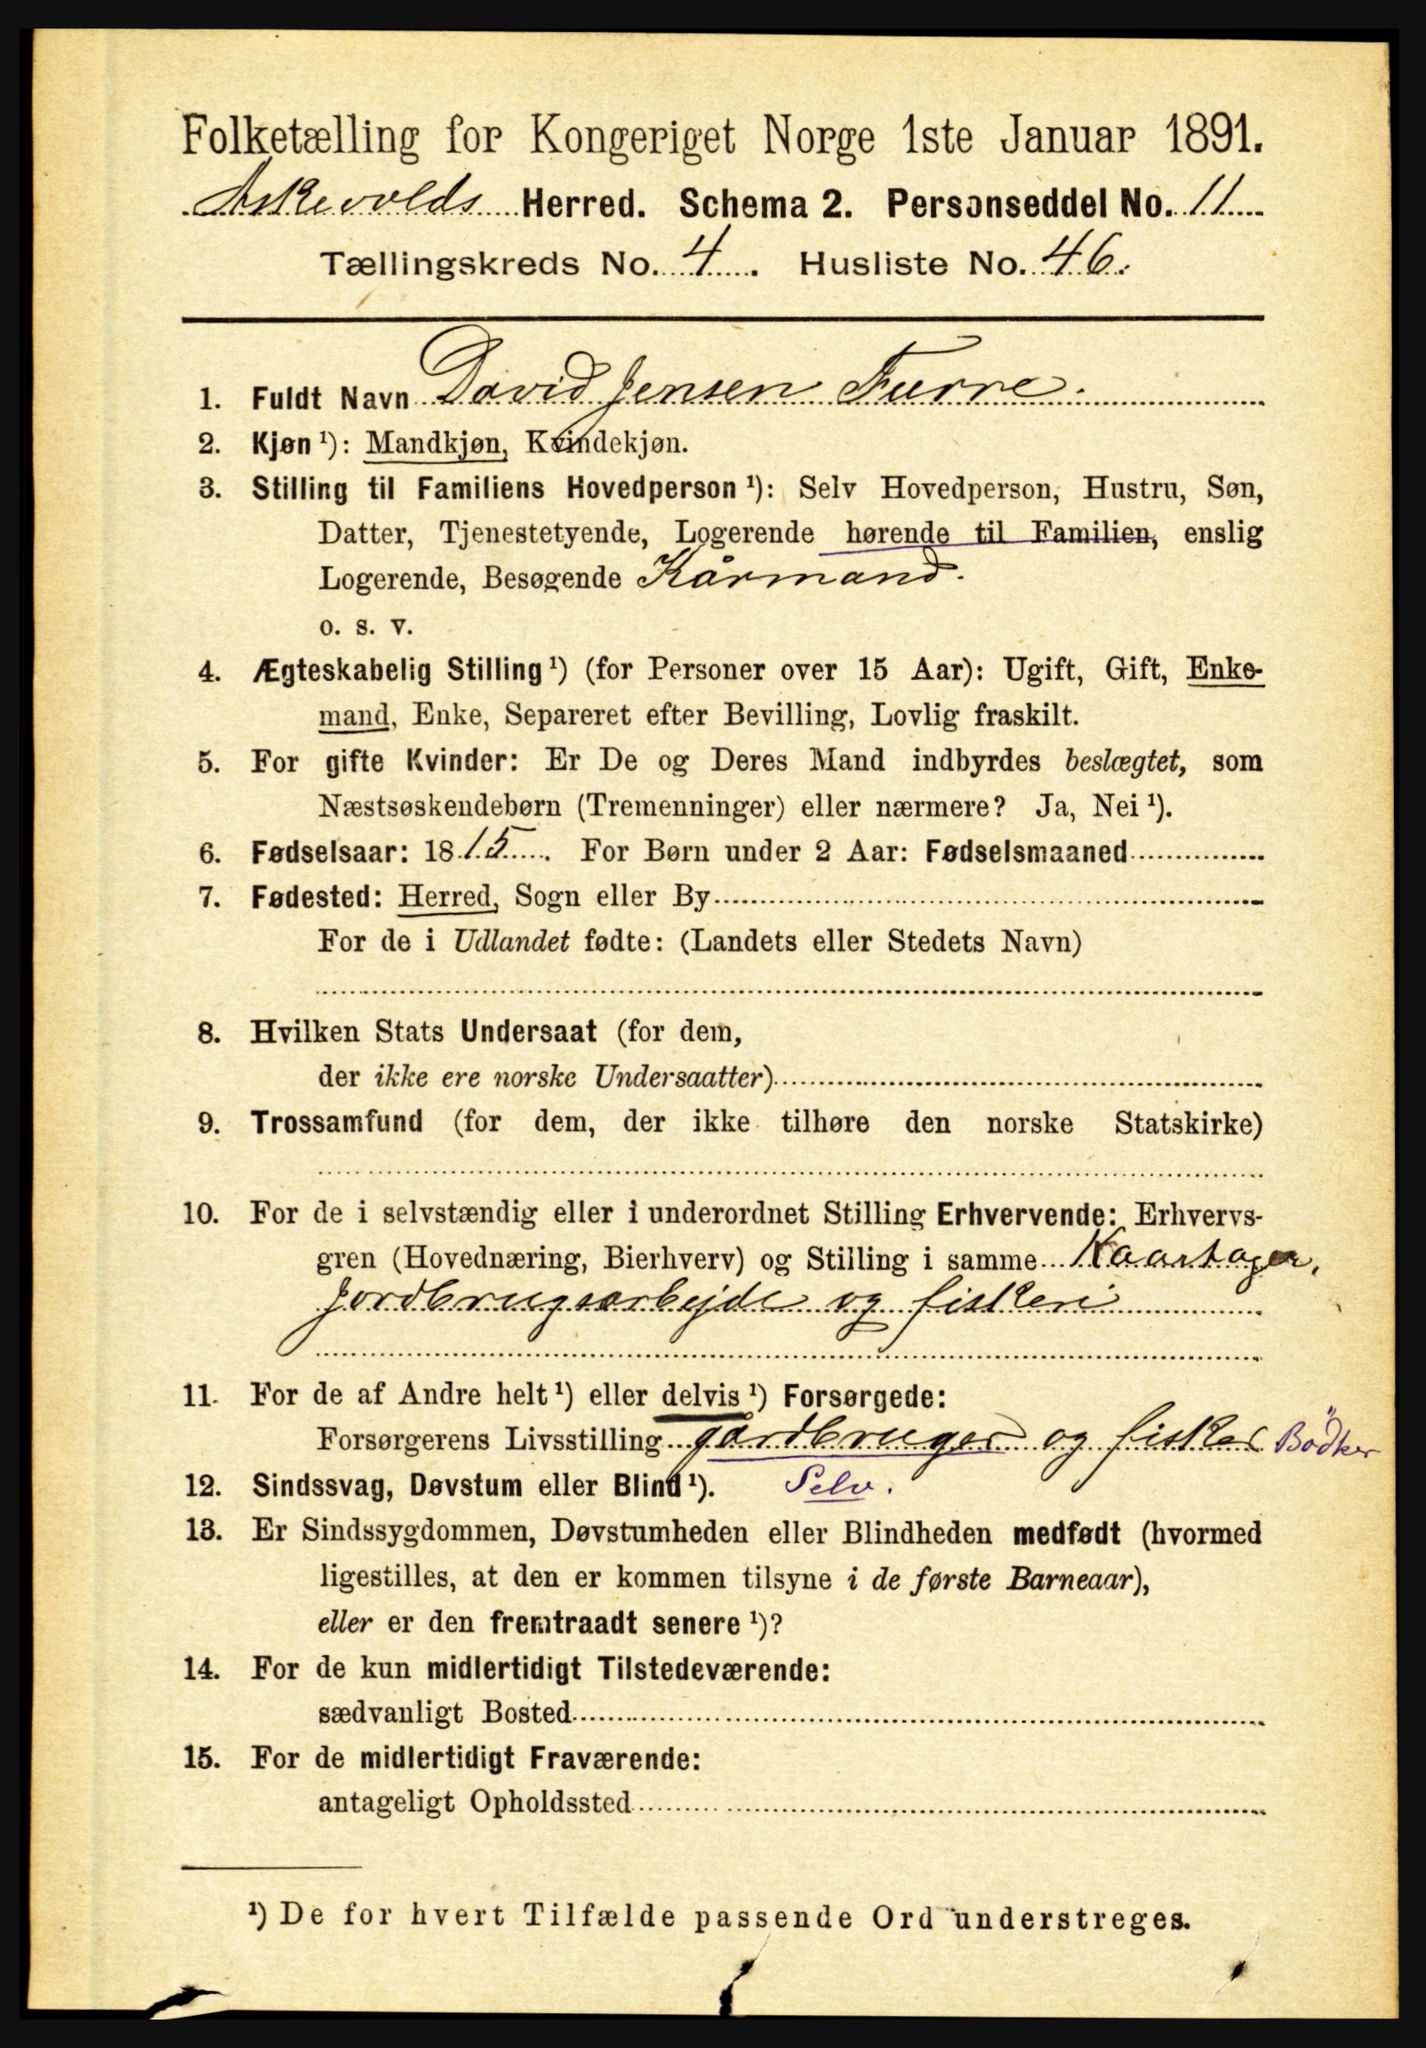 Folketælling for Kongeriget Norge 1ste Januar 1891.
Askevolds Herred. Schema 2. Personseddel No. 11
Tællingskreds No. 4. Husliste No. 46.
1. Fuldt Navn David Jensen Furre.
2. Kjøn ¹): Mandkjøn, Kvindekjøn.
3. Stilling til Familiens Hovedperson ¹): Selv Hovedperson, Hustru, Søn,
Datter, Tjenestetyende, Logerende hørende til Familien, enslig
Logerende, Besøgende Kårmand.
o. s. v.
4. Ægteskabelig Stilling ¹) (for Personer over 15 Aar): Ugift, Gift, Enke-
mand, Enke, Separeret efter Bevilling, Lovlig fraskilt.
5. For gifte Kvinder: Er De og Deres Mand indbyrdes beslægtet, som
Næstsøskendebørn (Tremenninger) eller nærmere? Ja, Nei ¹).
6. Fødselsaar: 1815. For Børn under 2 Aar: Fødselsmaaned
7. Fødested: Herred, Sogn eller By
For de i Udlandet fødte: (Landets eller Stedets Navn)
8. Hvilken Stats Undersaat (for dem,
der ikke ere norske Undersaatter)
9. Trossamfund (for dem, der ikke tilhøre den norske Statskirke)
10. For de i selvstændig eller i underordnet Stilling Erhvervende: Erhvervs-
gren (Hovednæring, Bierhverv) og Stilling i samme Kaartager,
Jordbrugsarbejde og fiskeri
11. For de af Andre helt ¹) eller delvis ¹) Forsørgede:
Forsørgerens Livsstilling gårdbruger og fisker Bödker
12. Sindssvag, Døvstum eller Blind ¹). Selv.
13. Er Sindssygdommen, Døvstumheden eller Blindheden medfødt (hvormed
ligestilles, at den er kommen tilsyne i de første Barneaar),
eller er den fremtraadt senere ¹)?
14. For de kun midlertidigt Tilstedeværende:
sædvanligt Bosted
15. For de midlertidigt Fraværende:
antageligt Opholdssted
¹) De for hvert Tilfælde passende Ord understreges.